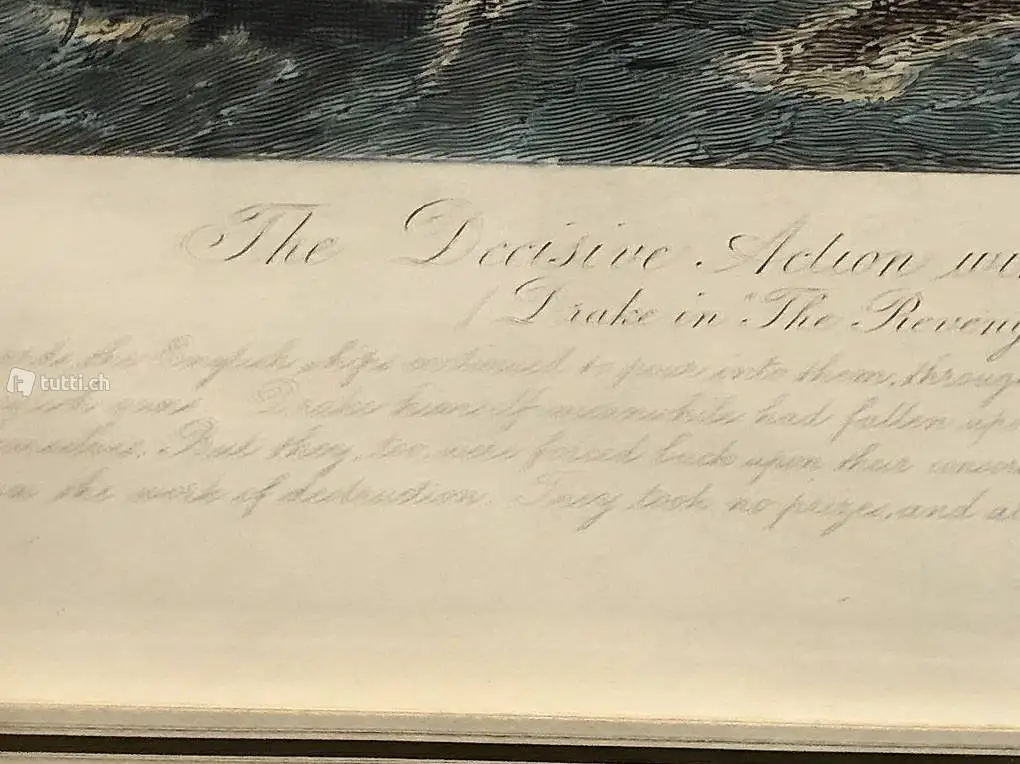 The Decisive Action
(Drake in "The
the English ships continued to pour into them, through
tutti.ch
guns. Drake himself meanwhile had fallen
But they, too, were forced back upon their
the work of destruction. They took no prizes, and